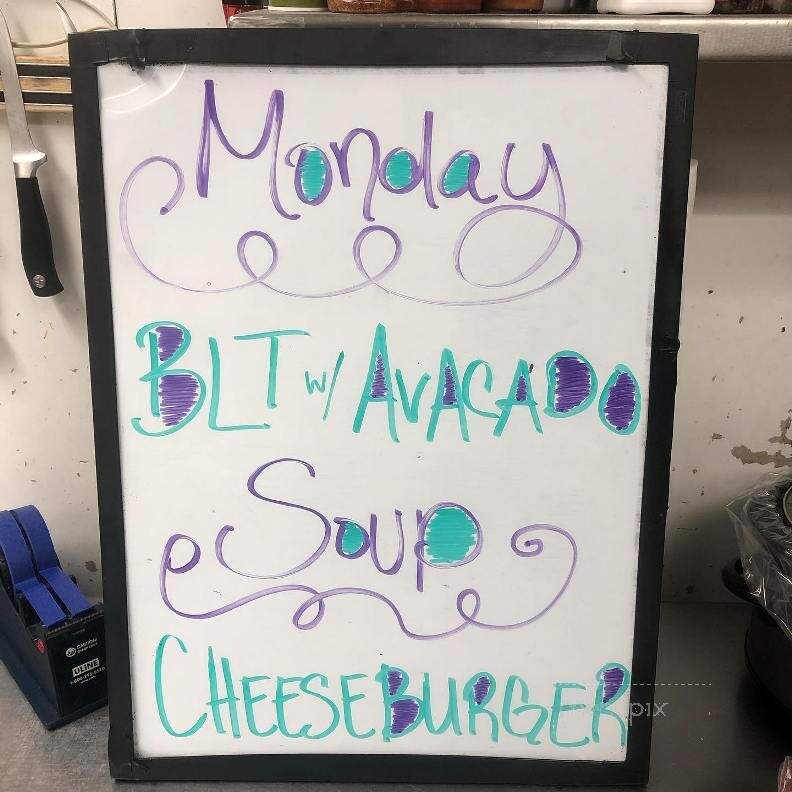 Monday
BLT w/ AVACADO
Soup
CHEESEBURGER
pix
ULINE